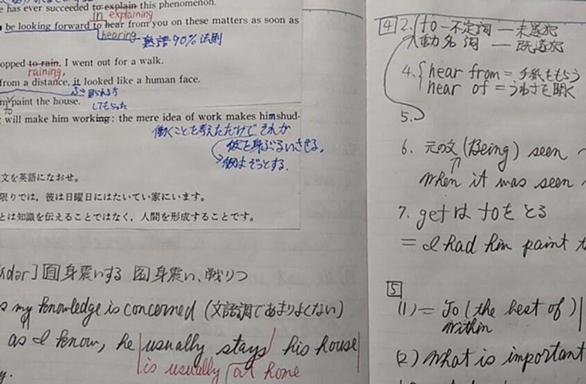 has ever succeeded to explain this phenomenon.
in explaining
be looking forward to hear from you on these matters as soon as
hearing 熟語90%法則
opped to rain, I went out for a walk.
raining,
from a distance, it looked like a human face.
paint the house.
to
してもらった
will make him working: the mere idea of work makes him shud-
働くことを考えただけで それが
彼を身ぶるいさせる。
彼はぞっとする。
文を英語になおせ。
限りでは,彼は日曜日にはたいてい家にいます。
とは知識を伝えることではなく,人間を形成することです。
dər] 自 身震いする 名 身震い、戦りつ
my knowledge is concerned (文語調であまりよくない)
as I know, he usually stays his house
is usually at home
4 2. to-不定詞 — 未造次
動名詞 — 既造次
4. hear from = 手紙をもらう
hear of = うわさを聞く
5.
6. 元の文 (Being) seen
When it was seen
7. getは toを とる
= I had him paint
5
(1) = To (the best of)
Within
(2) What is important